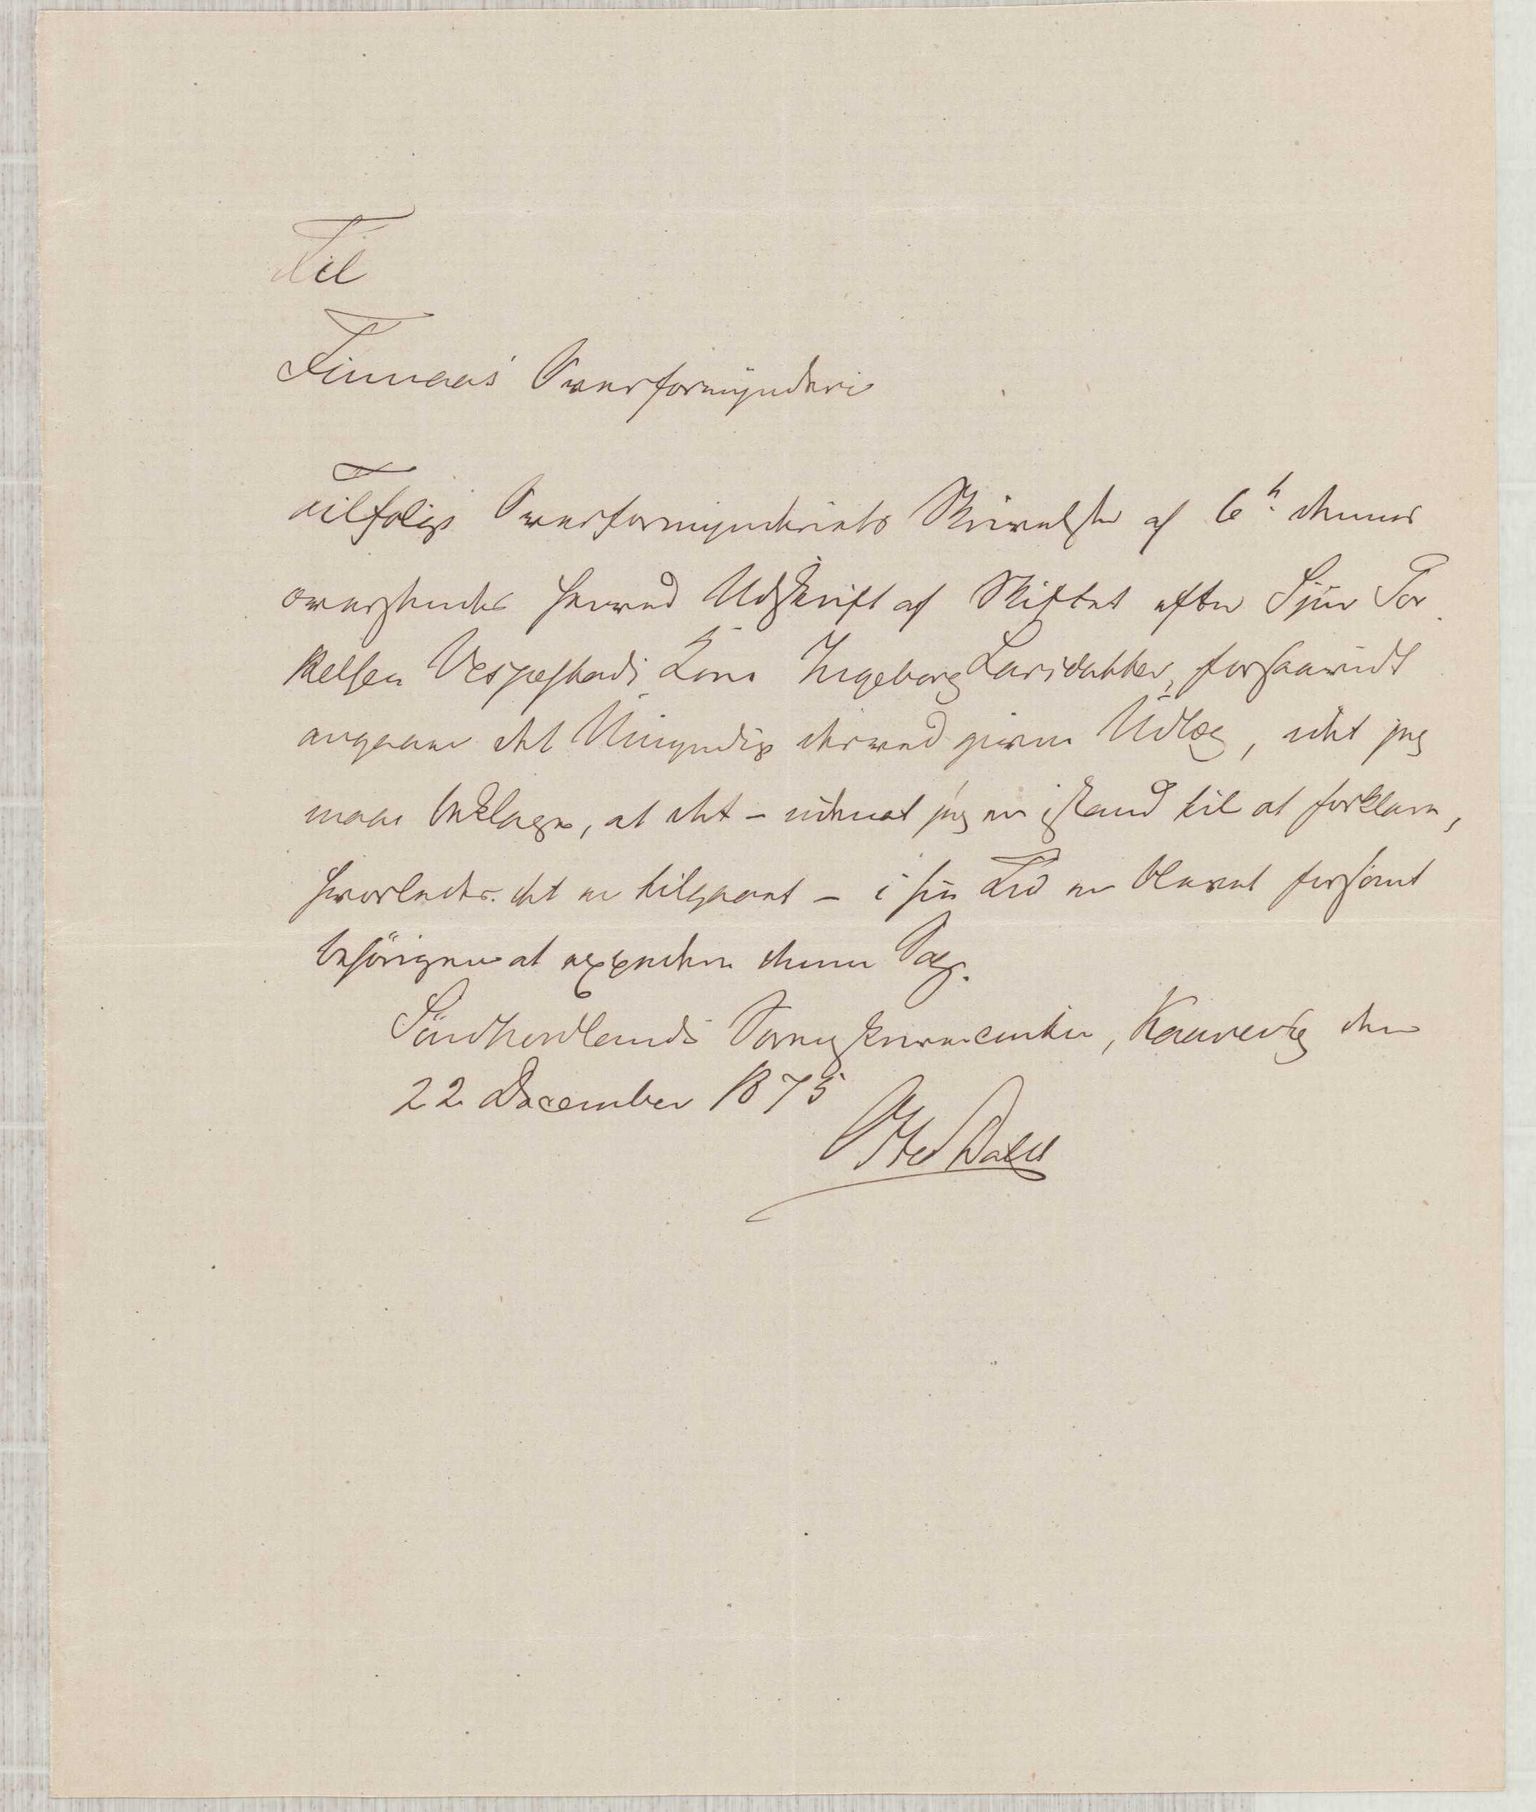 Til
Finnaas Overformynderi
Tilfølge Overformynderiets Skrivelse af 6te dennes
oversendes herved Udskrift af Skiftet efter Sjur Tor
kelsen Vespestads Kone Ingeborg Larsdatter, forsaavidt
angaaer det Umyndige derved givne Udlæg, idet jeg
maa beklage, at det – uden at jeg er istand til at forklare,
hvorledes det er tilgaaet – i sin Tid er blevet forsømt
behørigen at expedere denne Sag.
Søndhordlands Sorenskriverembede, den
22 December 1875